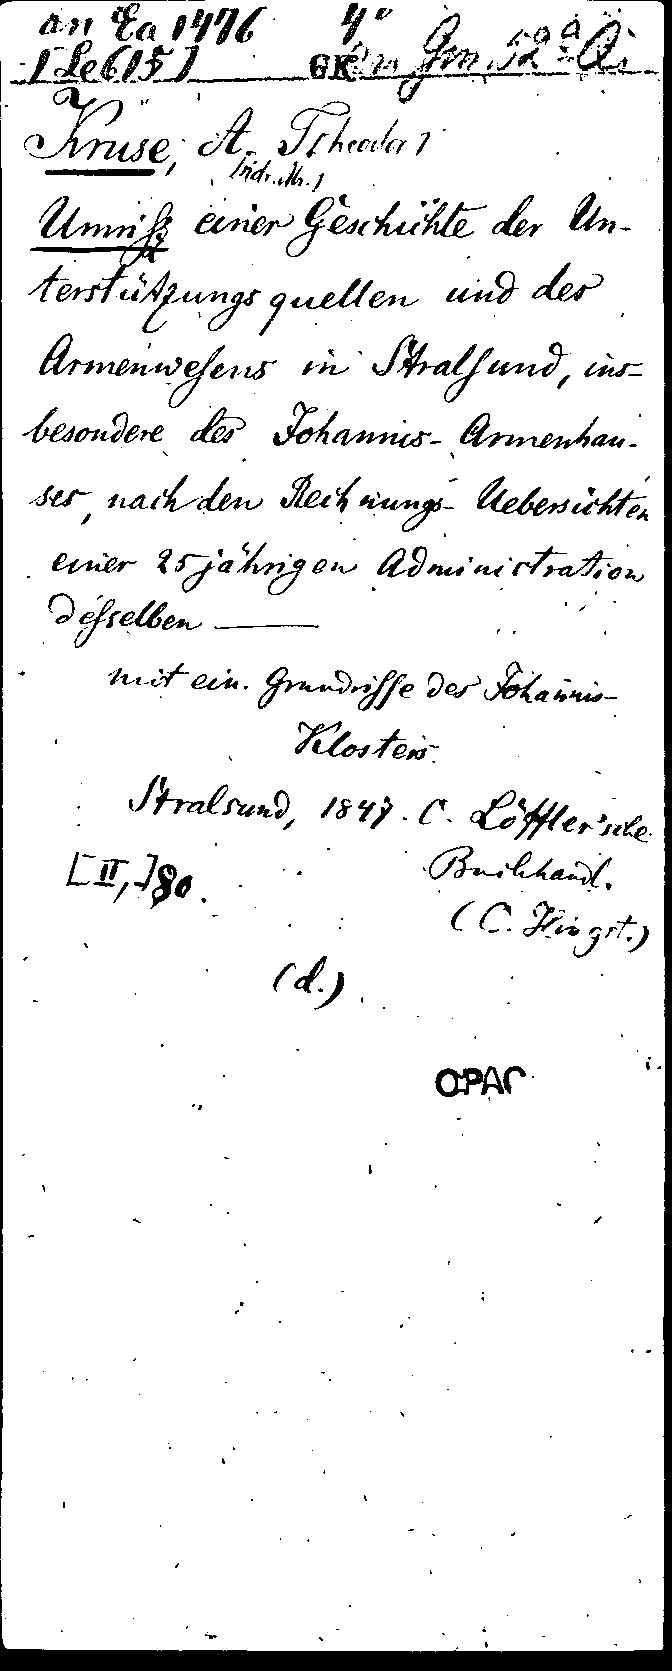 an Ea 1476 4°
[Le 615] GK Gm 52ª Qi
Kruse, A. Theodor
Umriß einer Geschichte der Un-
terstützungsquellen und des
Armenwesens in Stralsund, ins-
besondere des Johannis-Armenhau-
ses, nach den Rechnungs-Uebersichten
einer 25jährigen Administration
desselben —
mit ein. Grundrisse des Johannis-
Klosters.
Stralsund, 1847. C. Löffler'sche
Buchhandl.
[II,] 80.
(C. Hingst.)
(d.)
OPAC